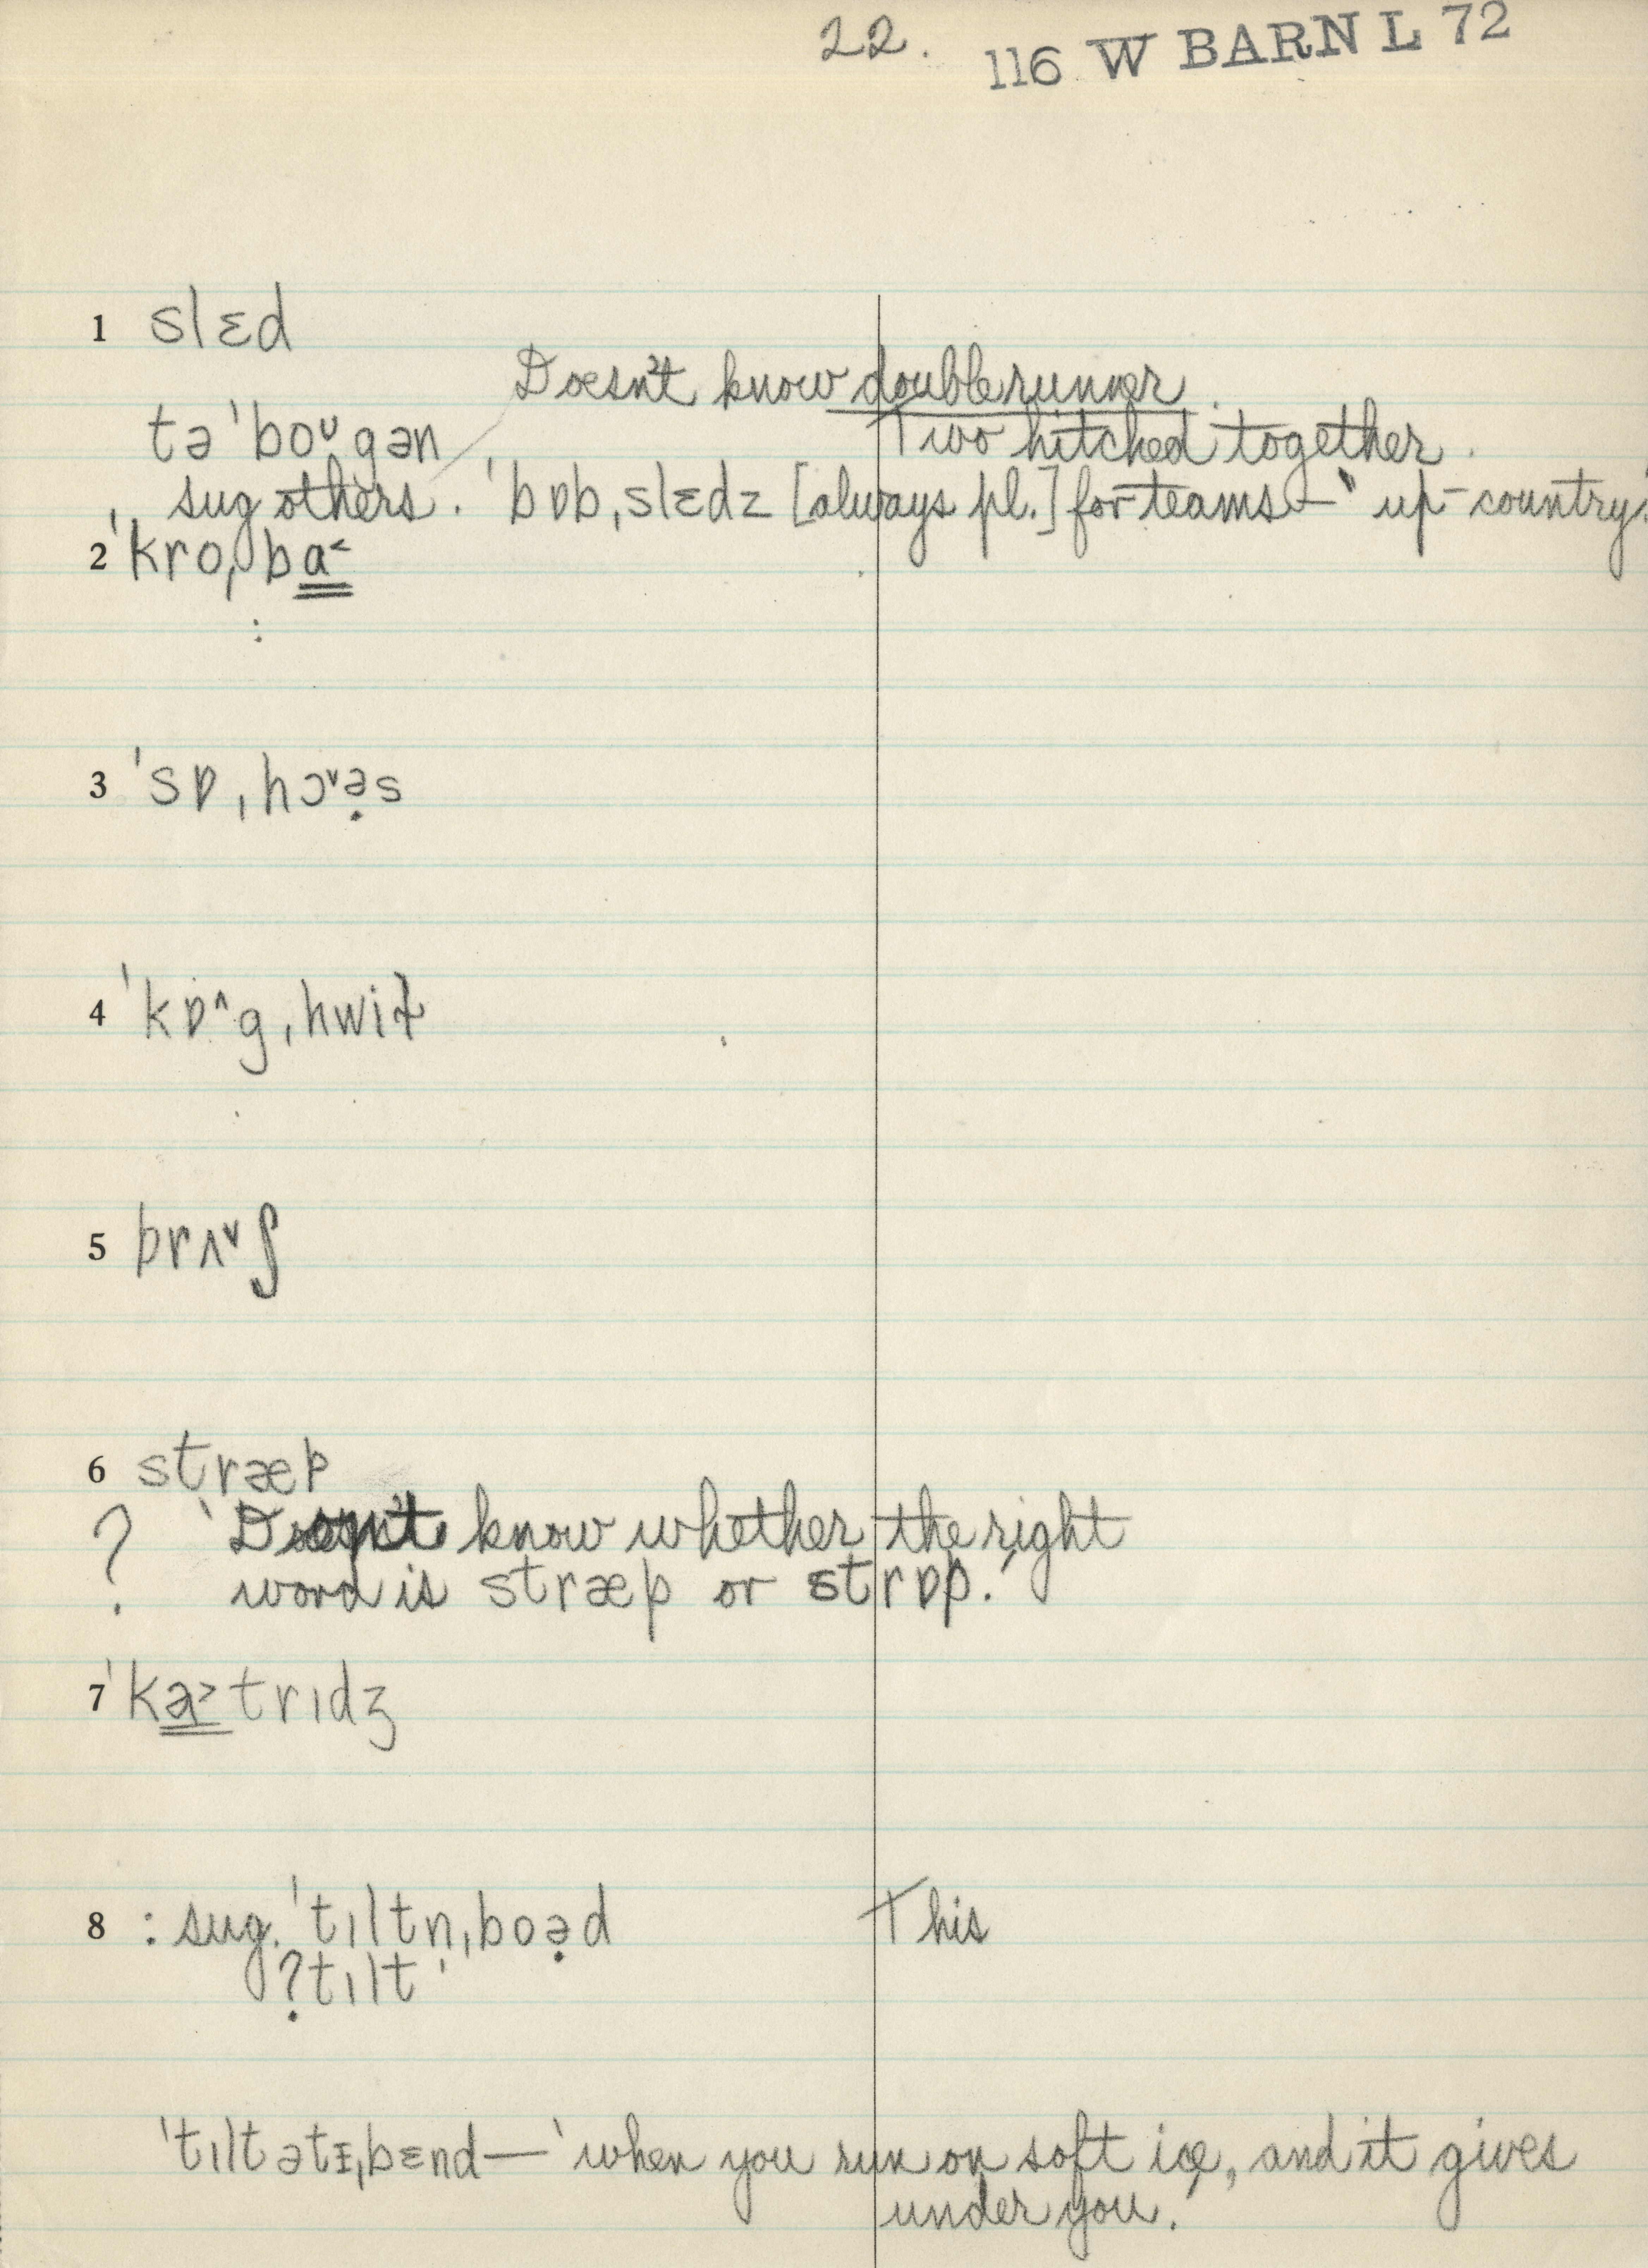 22. 116 W BARN L 72
1 slɛd
Doesn't know double runner.
tə'boᴜgən Two hitched together.
sug others. 'bɒb,slɛdz [always pl.] for teams — 'up-country'
2 'kro,ba˂
:
3 'sɒ,hɔ˅ə̣s
4 'kɒ^g,hwiɫ
5 brʌ˅ʃ
6 stræp
? 'Don't know whether the right
word is stræp or strɒp.'
7 'ka˃trɪdʒ
8 : sug. 'tɪltn̩,boə̣d This
?tɪlt'
'tɪlt ətɪ,bɛnd — 'when you run on soft ice, and it gives
under you.'